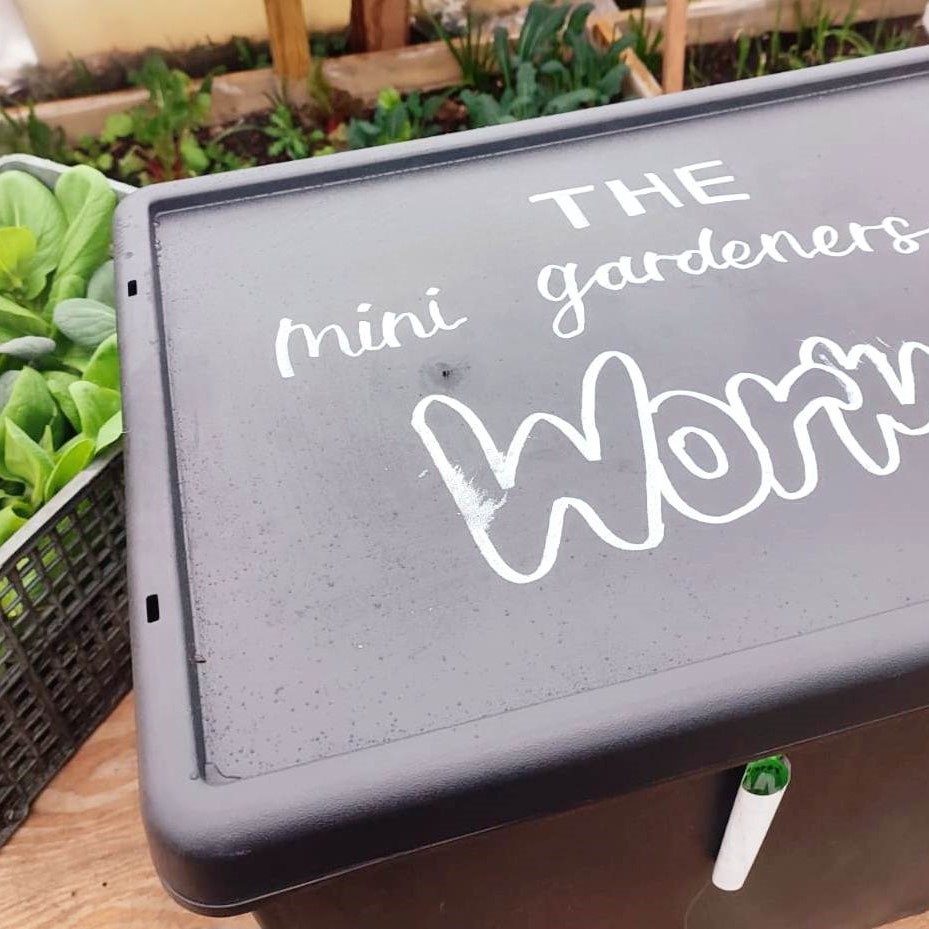 THE
mini gardeners
Worm